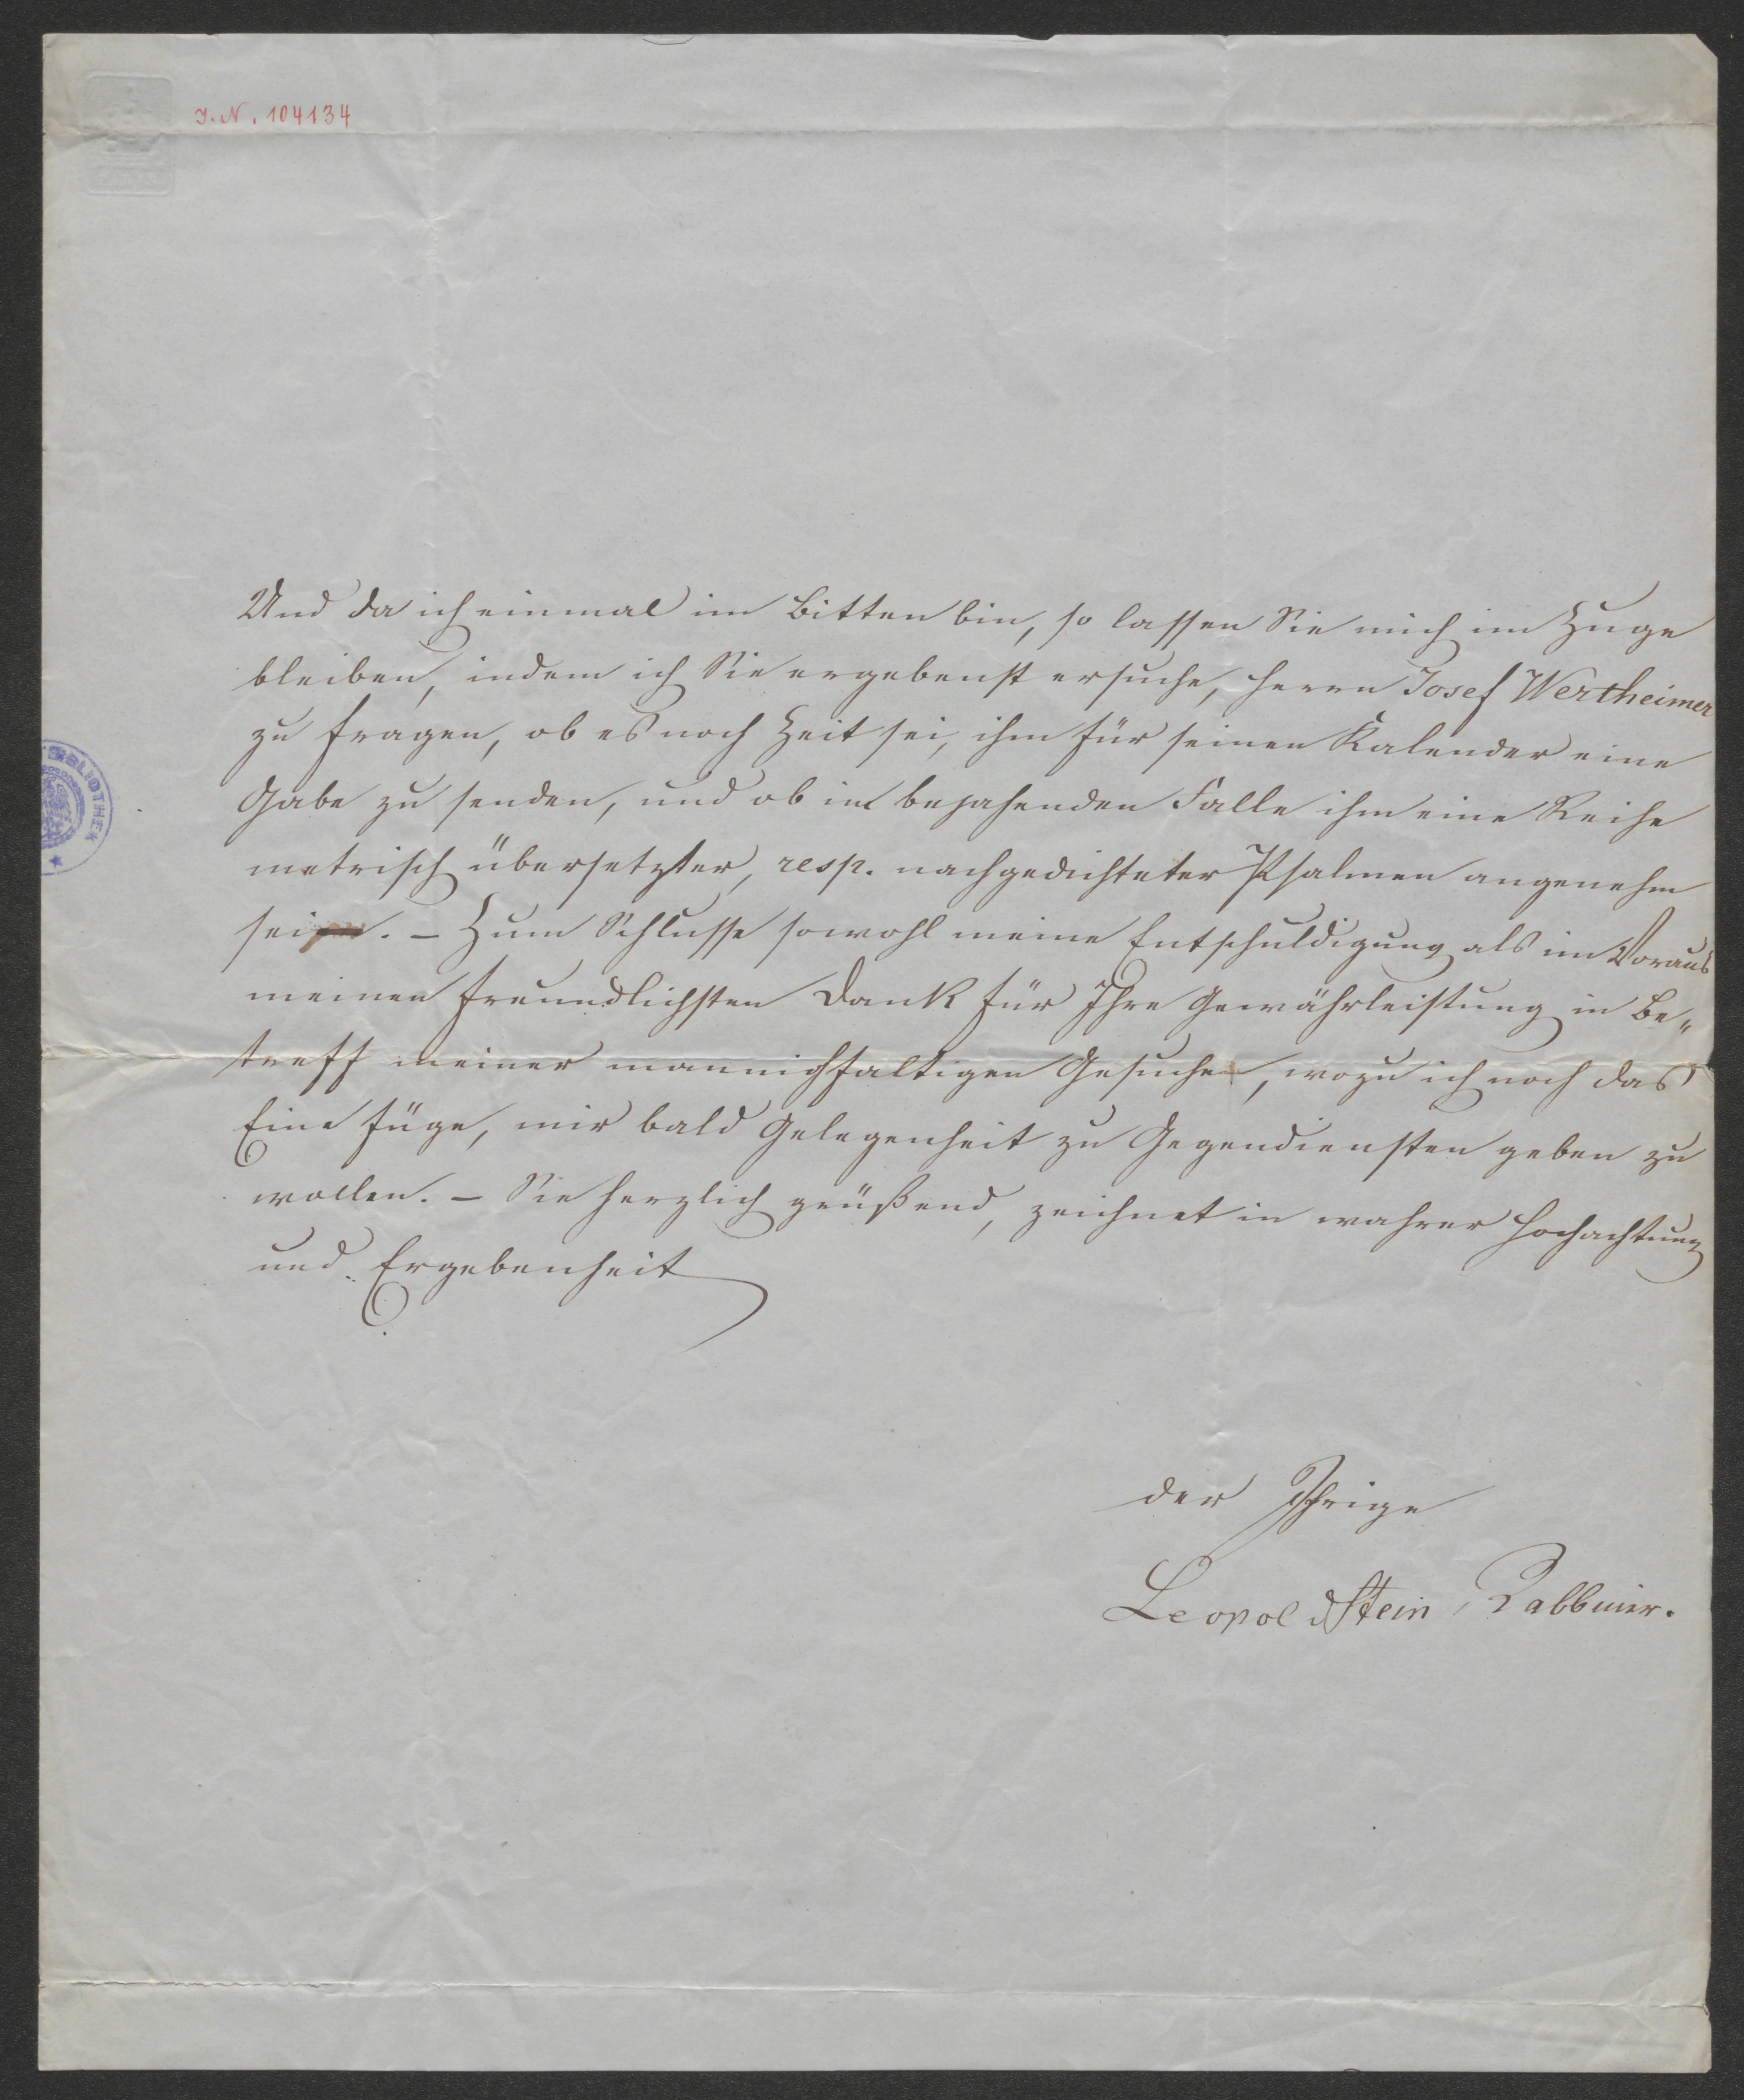 J. N. 104134
Und da ich einmal im Bitten bin, so lassen Sie mich im Zuge
bleiben, indem ich Sie ergebenst ersuche, Herrn Josef Wertheimer
zu fragen, ob es noch Zeit sei, ihm für seinen Kalender eine
Gabe zu senden, und ob im bejahenden Falle ihm eine Reihe
metrisch übersetzter, resp. nachgedichteter Psalmen angenehm
sei. – Zum Schlusse sowohl meine Entschuldigung als im Voraus
meinen freundlichsten Dank für Ihre Gewährleistung in Be„
treff meiner mannichfaltigen Gesuche, wozu ich noch das
Eine füge, mir bald Gelegenheit zu Gegendiensten geben zu
wollen. – Sie herzlich grüßend, zeichnet in wahrer Hochachtung
und Ergebenheit
der Ihrige
Leopold Stein, Rabbiner.
BIBLIOTHEK